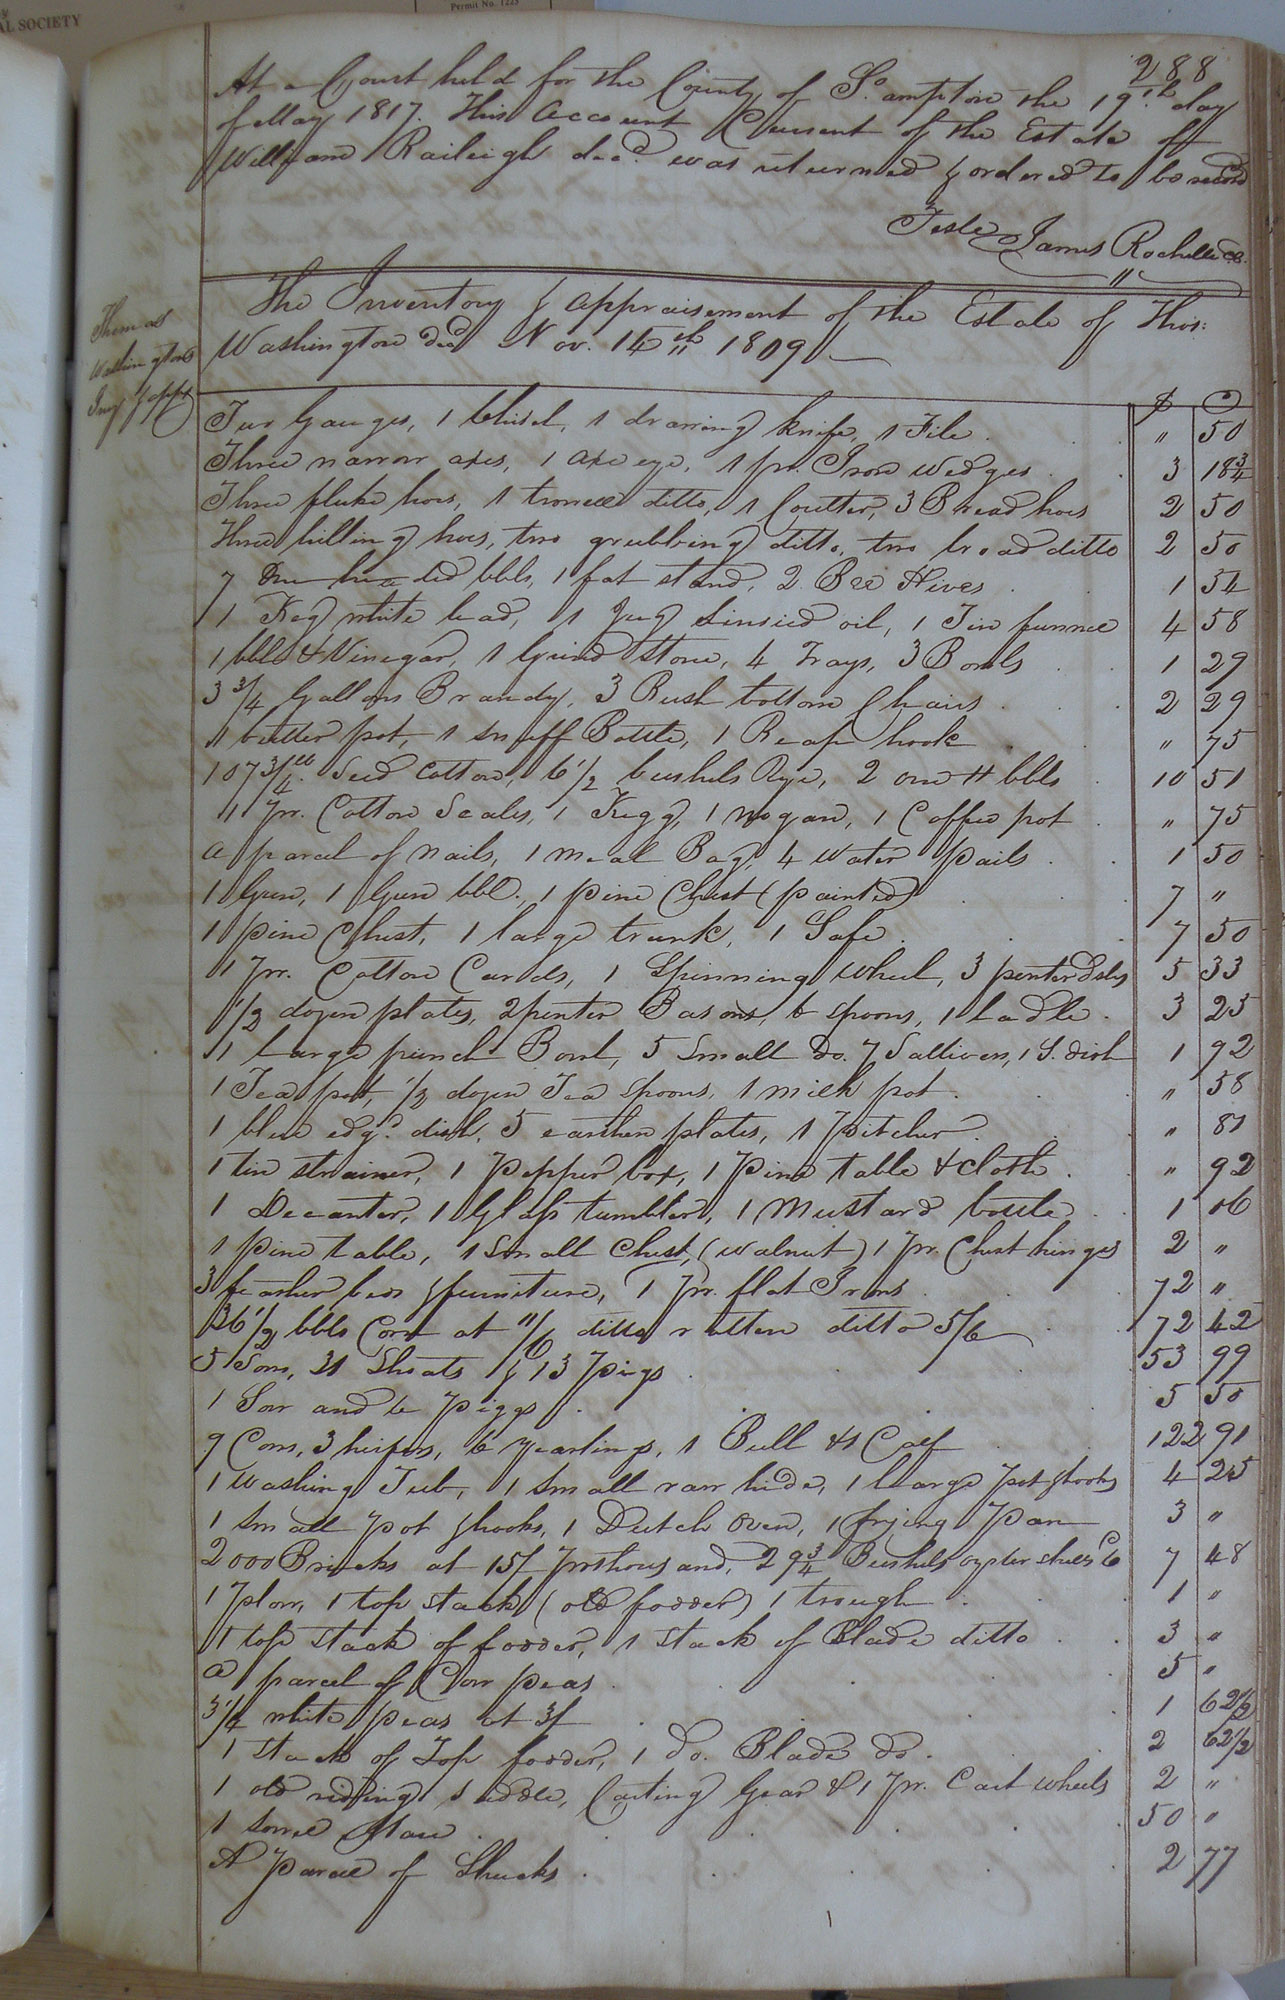 AL SOCIETY
Permit No. 1225
288
At a Court held for the County of So. ampton the 19th. day
of May 1817. This Account Current of the Estate of
William Raileigh decd. was returned & ordered to be record
Teste James Rochelle CC.
The Inventory & appraisement of the Estate of Thos:
Washington decd Nov. 14th 1809
Thomas
Washingtons
Inv. & appt
$ C
Two Gauges, 1 Chisel, 1 drawing knife, 1 File . " 50
Three narrow axes, 1 axe eye, 1 pr. Iron wedges . 3 18¾
Three fluke hoes, 1 trowell ditto, 1 Coulter, 3 Bread hoes 2 50
Three hilling hoes, two grubbing ditto, two broad ditto 2 50
7 One headed bbls, 1 fat stand, 2 Bee Hives . 1 54
1 Keg white lead, 1 Jug Linsied oil, 1 Tin funnel 4 58
1 bbl & Vinegar, 1 Grind Stone, 4 Trays, 3 Bowls . 1 29
3 3/4 Gallons Brandy, 3 Rush bottom Chairs . 2 29
1 butter pot, 1 snuff Bottle, 1 Reap hook . " 75
107 3/4 lb. Seed Cotton, 6 1/2 bushels Rye, 2 one H bbls . 10 51
1 pr. Cotton Scales, 1 Kegg, 1 nogan, 1 Coffee pot . " 75
a parcel of nails, 1 meal Bag, 4 water pails . 1 50
1 Gun, 1 Gun bbl., 1 pine Chest (painted) . 7 "
1 pine Chest, 1 large trunk, 1 Safe . 7 50
1 pr. Cotton Cards, 1 Spinning wheel, 3 pewter dishes 5 33
1/2 dozen plates, 2 pewter Basons, 6 spoons, 1 Ladle . 3 25
1 Large punch Bowl, 5 Small do. 7 Salliven, 1 S. dish 1 92
1 Tea pot, 1/2 dozen Tea Spoons, 1 milk pot . " 58
1 blue edgd. dish, 5 earthen plates, 1 Pitcher . " 81
1 tin strainer, 1 Pepper box, 1 Pine table & cloth . " 92
1 Decanter, 1 Glass tumbler, 1 Mustard bottle . 1 06
1 pine table, 1 Small Chest, (walnut) 1 pr. Chest hinges 2 "
3 feather beds & furniture, 1 pr. flat Irons . 72 "
36 1/2 bbls Corn at 11/6 ditto rotten ditto 5/6 72 42
5 Sows, 31 Shoats & 13 Pigs . 53 99
1 Sow and 6 Piggs . 5 50
9 Cows, 3 heifers, 6 yearlings, 1 Bull & 1 Calf . 122 91
1 washing Tub, 1 small raw hide, 1 Large Pot & hooks 4 25
1 small pot & hooks, 1 Dutch Oven, 1 frying Pan 3 "
2000 Bricks at 15/ pr thousand, 29 3/4 Bushels oyster shells @ 6 7 48
1 Plow, 1 top stack (old fodder) 1 trough . 1 "
1 top stack of fodder, 1 stack of Blade ditto . 3 "
a parcel of Cow peas . 5 "
3 1/4 white peas at 3/ . 1 62½
1 stack of Top fodder, 1 do. Blade do . 2 62½
1 old riding saddle, Carting Gear & 1 pr. Cart wheels 2 "
1 sorrel Mare . 50 "
A Parcel of Shucks . 2 77